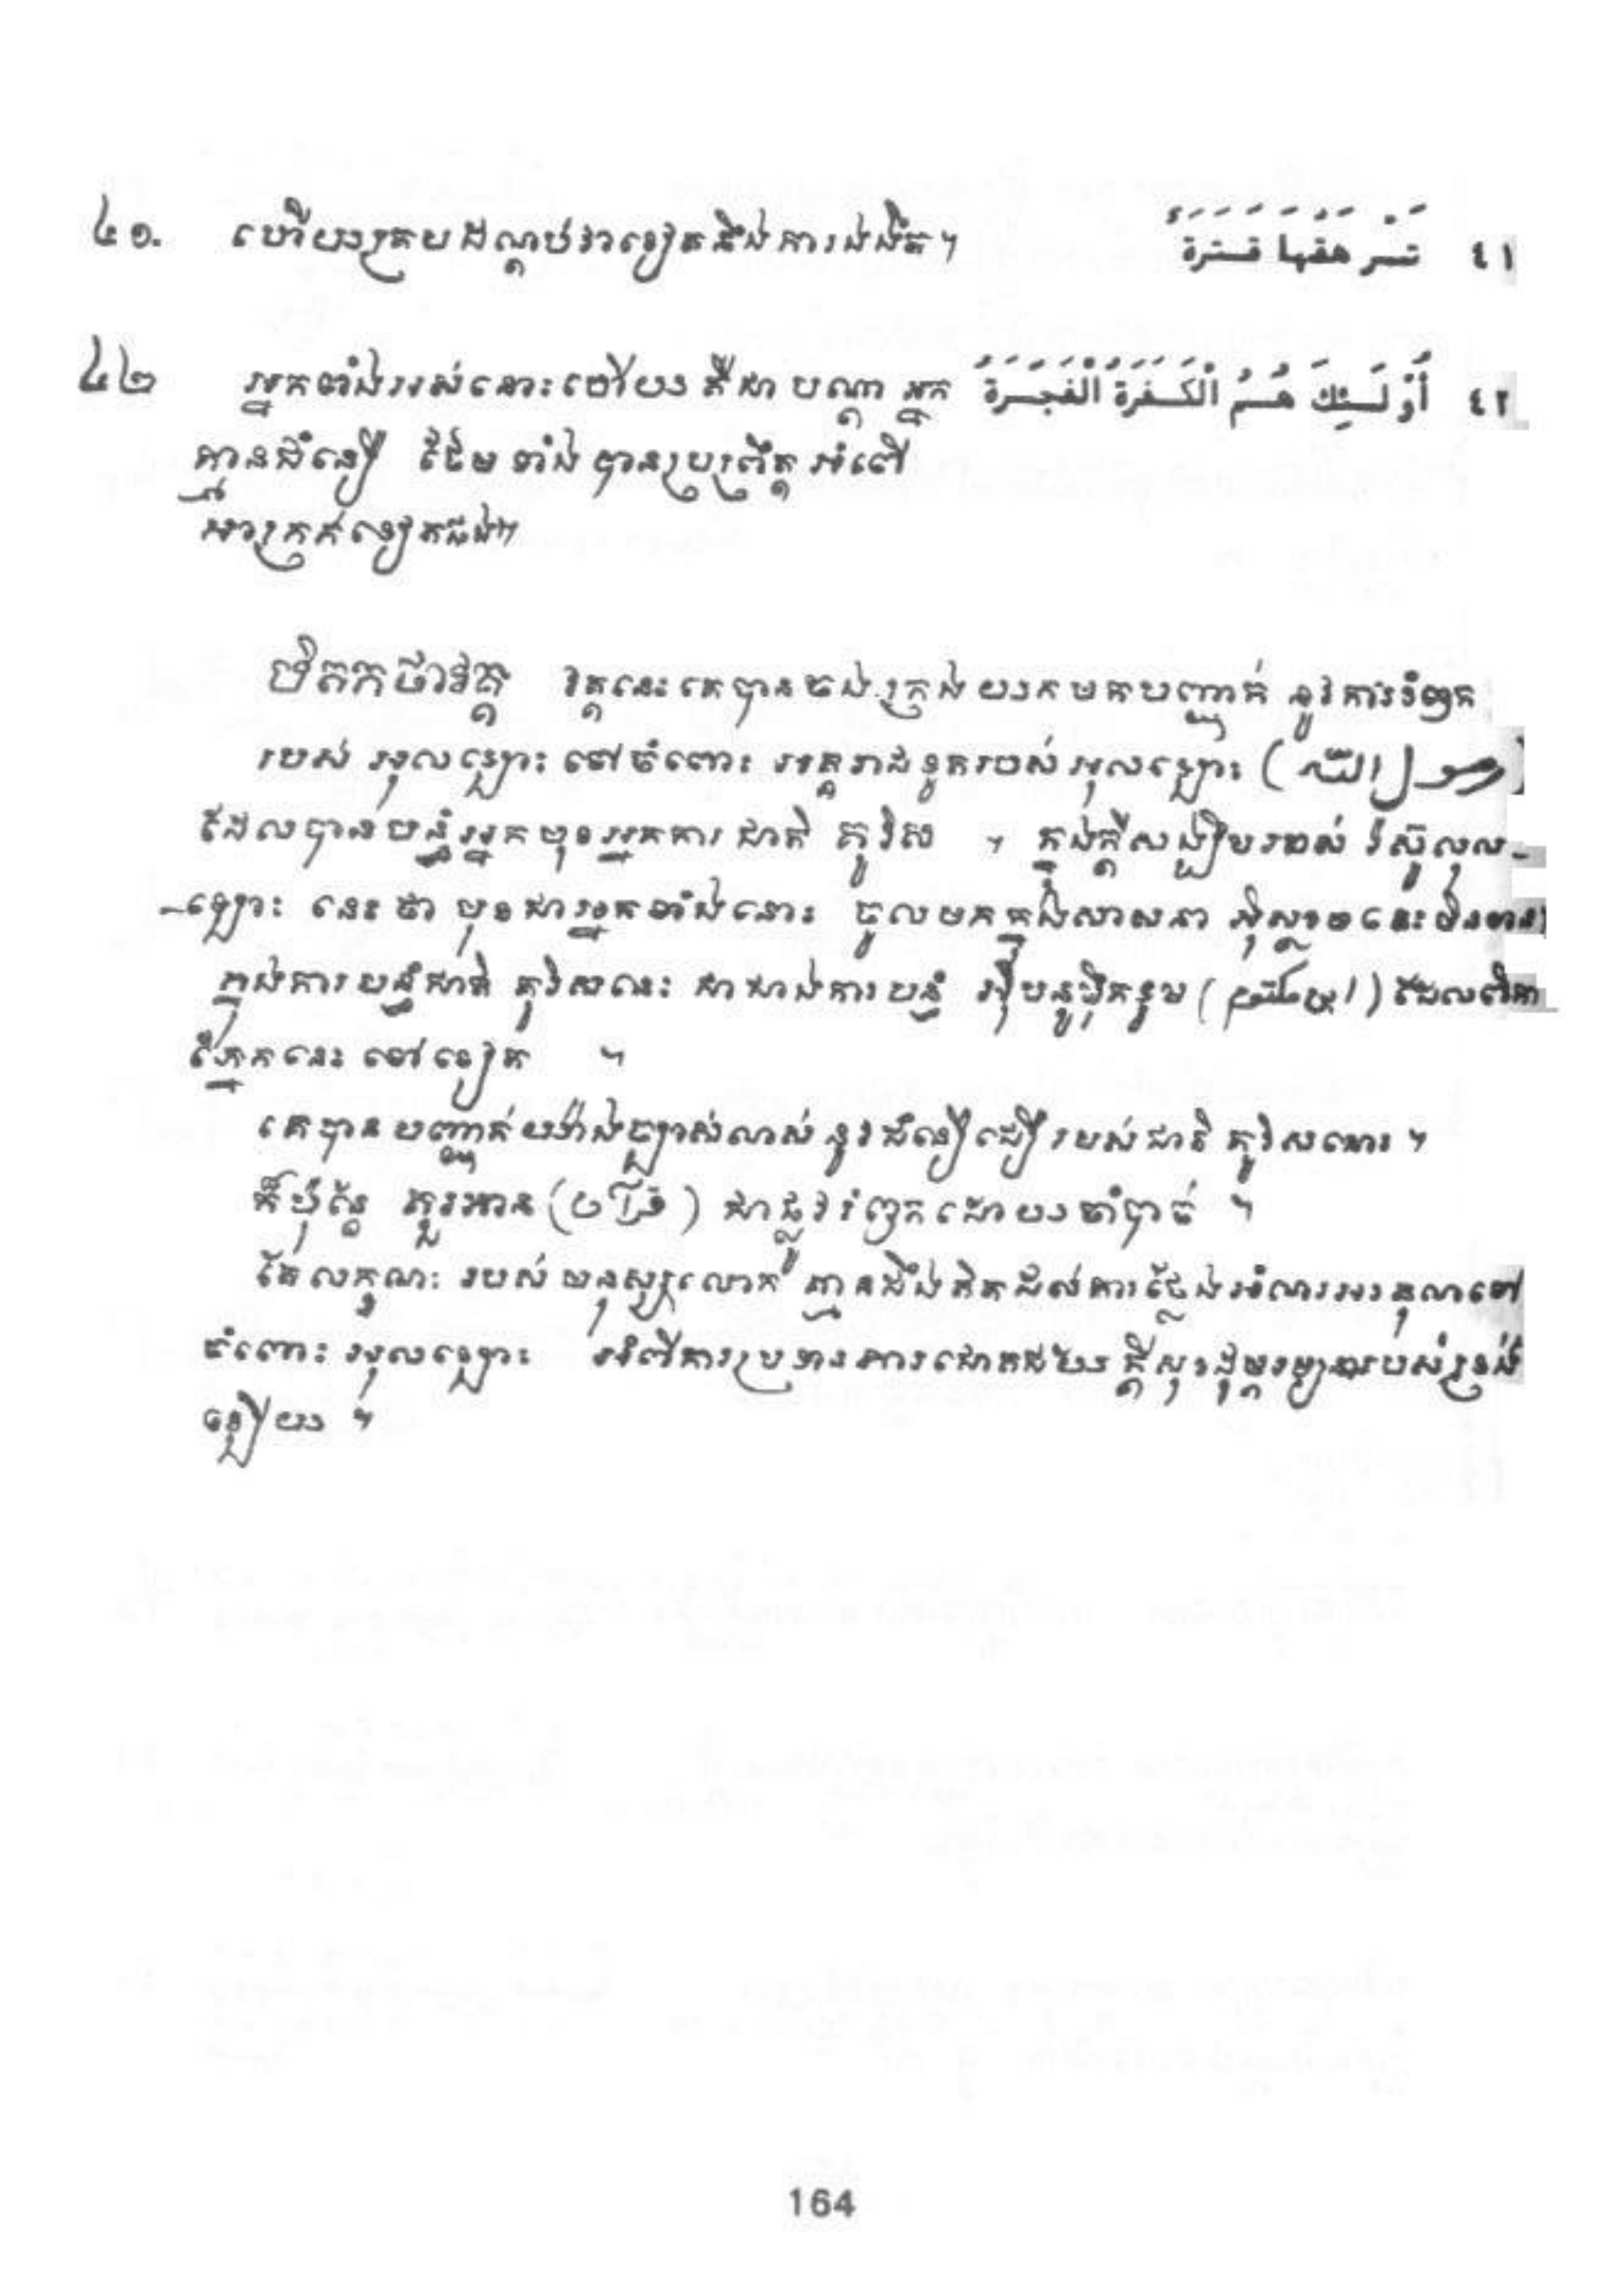 ៤១. ហើយគ្របដណ្តប់វាទៀតនឹងការងងឹត។ تَرْهَقُهَا قَتَرَةٌ ٤١
៤២ អ្នកទាំងអស់នោះហើយ គឺជា បណ្តា អ្នក أُوْلَـٰٓئِكَ هُمُ الْكَفَرَةُ الْفَجَرَةُ ٤٢
គ្មានជំនឿ ថែម ទាំង បានប្រព្រឹត្ត អំពើ
អាក្រក់ទៀតផង។
បិតកថាវគ្គ វគ្គនេះ គេបានចងក្រង យកមកបញ្ជាក់ នូវការរំឭក
របស់ អុលឡោះ ទៅចំពោះ អគ្គរាជទូតរបស់អុលឡោះ (رسول الله)
ដែលបានបន្ទំអ្នកមុខអ្នកការ ជាតិ គូរីស ។ ក្នុងក្តីសង្ឃឹមរបស់ រ៉ស៊ូលុល-
-ឡោះ នេះថា មុខជាអ្នកទាំងនោះ ចូលមកក្នុងសាសនា អ៊ីស្លាមនេះមិនខាន
ក្នុងការបន្ទំជាតិ គូរីសនេះ ជាជាងការបន្ទំ អ៊ីបនូម៉ិកទូម ( ) ដែលពិការ
ភ្នែកនេះ ទៅទៀត ។
គេបានបញ្ជាក់យ៉ាងច្បាស់ណាស់ នូវជំនឿជឿ របស់ជាតិ គូរីសនោះ ។
ក៏ប៉ុន្តែ គួរអាន ( ) ជាផ្លូវរំឭកដោយចាំបាច់ ។
តែលក្ខណៈ របស់ មនុស្សលោក គ្មានដឹងគិតដល់ការថ្លែងអំណរអរគុណទៅ
ចំពោះ អុលឡោះ អំពីការប្រទានភាពជោគជ័យ ក្តីសុខដុមរមនារបស់ទ្រង់
ឡើយ ។
164